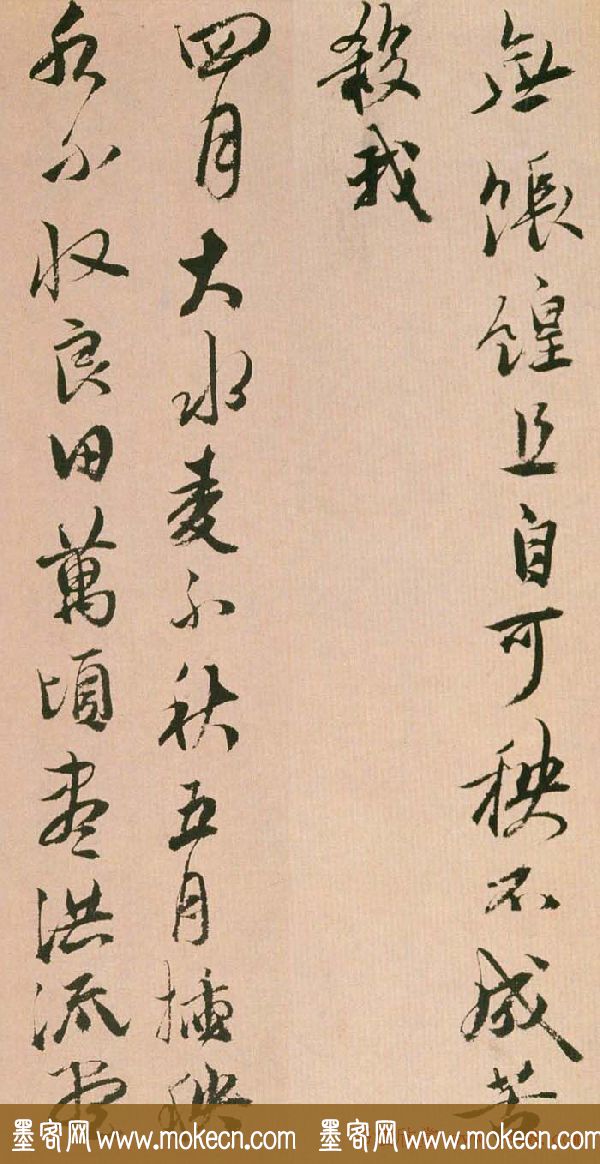 無餦餭且自可秧不成苦
殺我
四月大水麦不秋五月插秧
永不收良田萬頃盡洪流
墨客网 www.mokecn.com 墨客网 www.mokecn.com